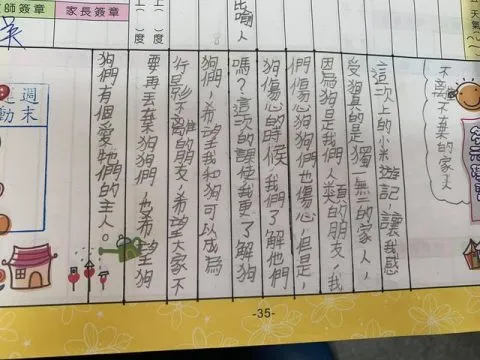 不離不棄的家人
這次上的小米遊記，讓我感
受狗真的是獨一無二的家人，
因為狗是我們人類的朋友，我
們傷心狗狗們也傷心，但是，
狗傷心的時候我們了解他們
嗎？這次的課使我更了解狗
狗們，希望我和狗可以成為
行影不離的朋友，希望大家不
要再丟棄狗狗們，也希望狗
狗們有個愛牠們的主人。
師簽章
家長簽章
上（ ）度
比喻人
週末
動
-35-